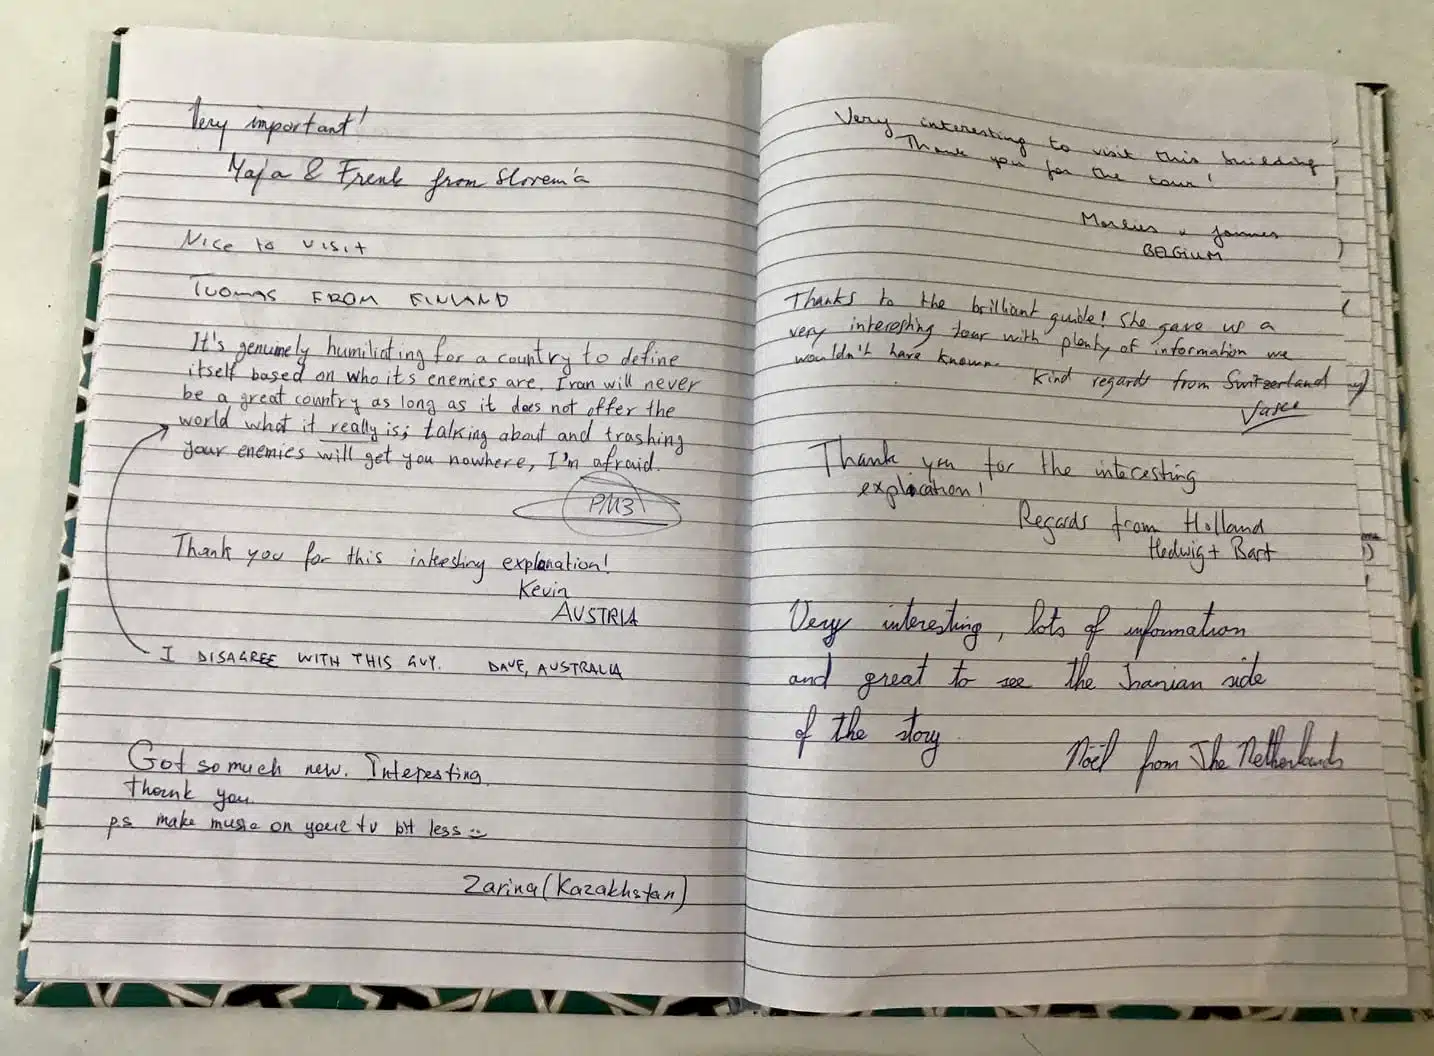 Very important!
Maja & Frenk from Slovenia
Nice to visit
TUOMAS FROM FINLAND
It's genuinely humiliating for a country to define
itself based on who its enemies are. Iran will never
be a great country as long as it does not offer the
world what it really is; talking about and trashing
your enemies will get you nowhere, I'm afraid.
PM3
Thank you for this interesting explanation!
Kevin
AUSTRIA
I DISAGREE WITH THIS GUY. DAVE, AUSTRALIA
Got so much new. Interesting.
Thank you.
p.s make music on your tv bit less
Zarina (Kazakhstan)
Very interesting to visit this building
Thank you for the tour!
BELGIUM
Thanks to the brilliant guide! She gave us a
very interesting tour with plenty of information we
wouldn't have known.
Kind regards from Switzerland
Thank you for the interesting
explication!
Regards from Holland
Hedwig + Bart
Very interesting, lots of information
and great to see the Iranian side
of the story.
Noël from The Netherlands